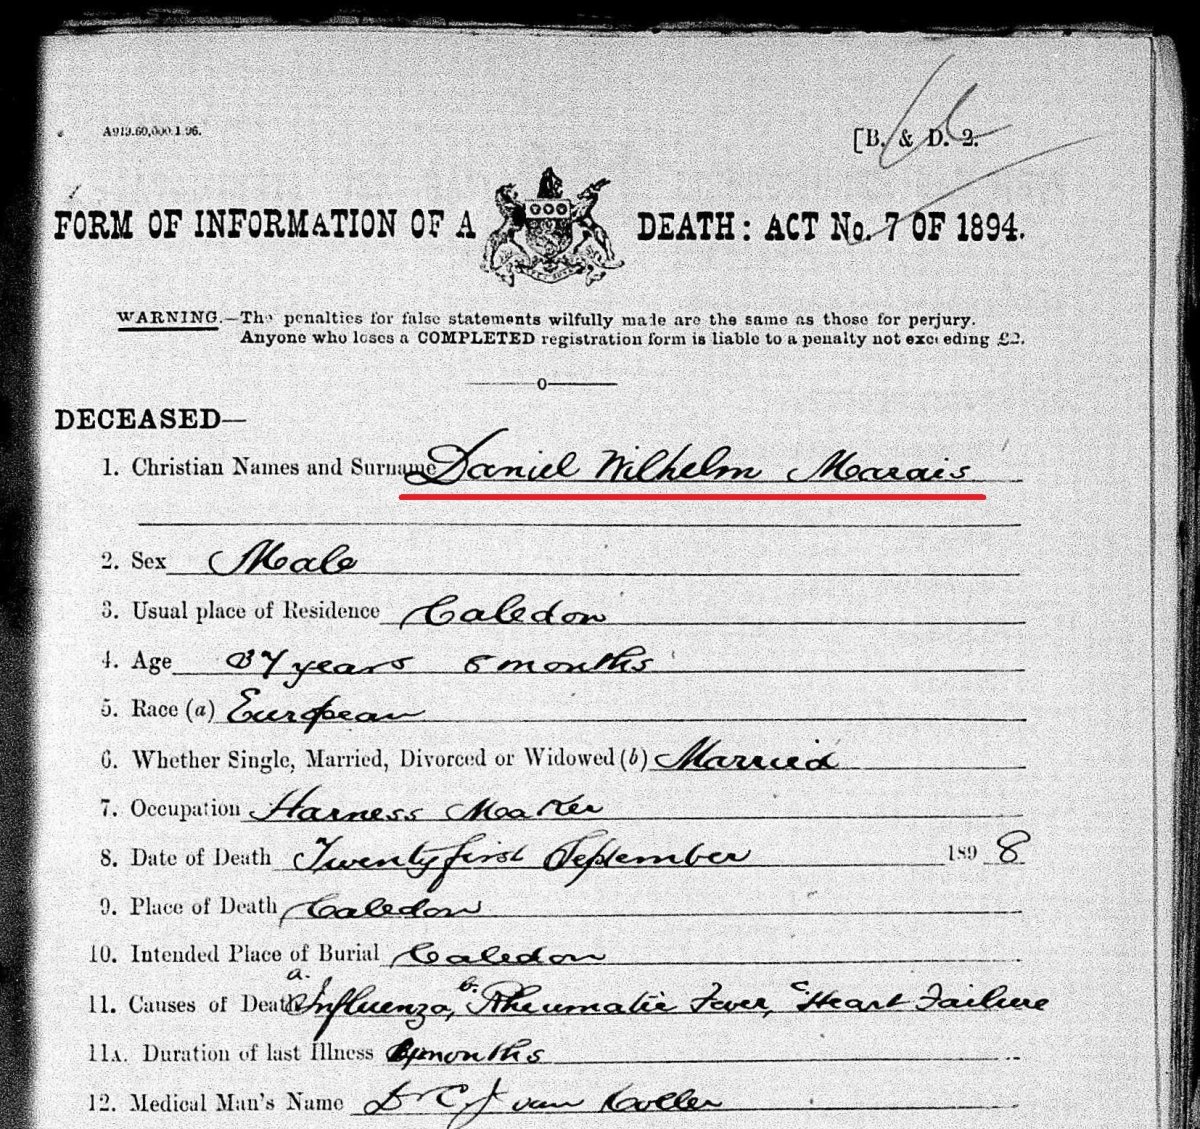 A919.60,000.1.96.
[B. & D. 2.
FORM OF INFORMATION OF A DEATH: ACT No. 7 OF 1894.
WARNING.—The penalties for false statements wilfully made are the same as those for perjury.
Anyone who loses a COMPLETED registration form is liable to a penalty not exceeding £2.
DECEASED—
1. Christian Names and Surname Daniel Wilhelm Marais
2. Sex Male
3. Usual place of Residence Caledon
4. Age 37 years 6 months
5. Race (a) European
6. Whether Single, Married, Divorced or Widowed (b) Married
7. Occupation Harness Maker
8. Date of Death Twenty first September 1898
9. Place of Death Caledon
10. Intended Place of Burial Caledon
11. Causes of Death a. Influenza, b. Rheumatic Fever, c. Heart Failure
11A. Duration of last Illness months
12. Medical Man's Name Dr C J van